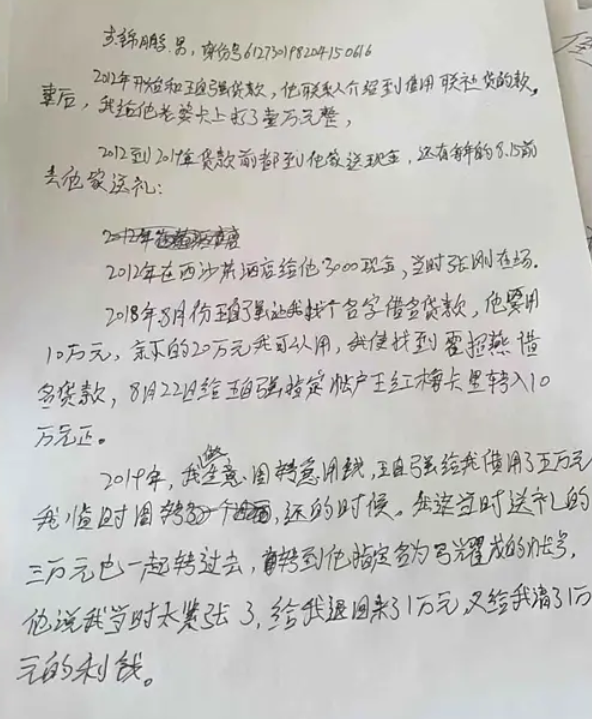 锦鹏,男,身份号612730198204150616
2012年开始和王自强贷款,他联系人介绍到信用联社贷的款。
事后,我给他老婆卡上打了壹万元整,
2012到2019年贷款前都到他家送现金,还有每年的8.15前
去他家送礼:
2012年在西沙 酒店给他3000现金,当时张刚在场.
2018年8月份王自强让我找个名字借名贷款,他要用
10万元,余下的20万元我可以用,我便找到霍招燕借
名贷款,8月22日给王自强指定账户王红梅卡里转入10
万元正。
2019年,我做生意周转急用钱,王自强给我借用了五万元
我临时周转,还的时候。我连当时送礼的
三万元也一起转过去,转到他指定名为 耀成的账号,
他说我当时太紧张了,给我退回来了1万元,又给我清了1万
元的利钱。